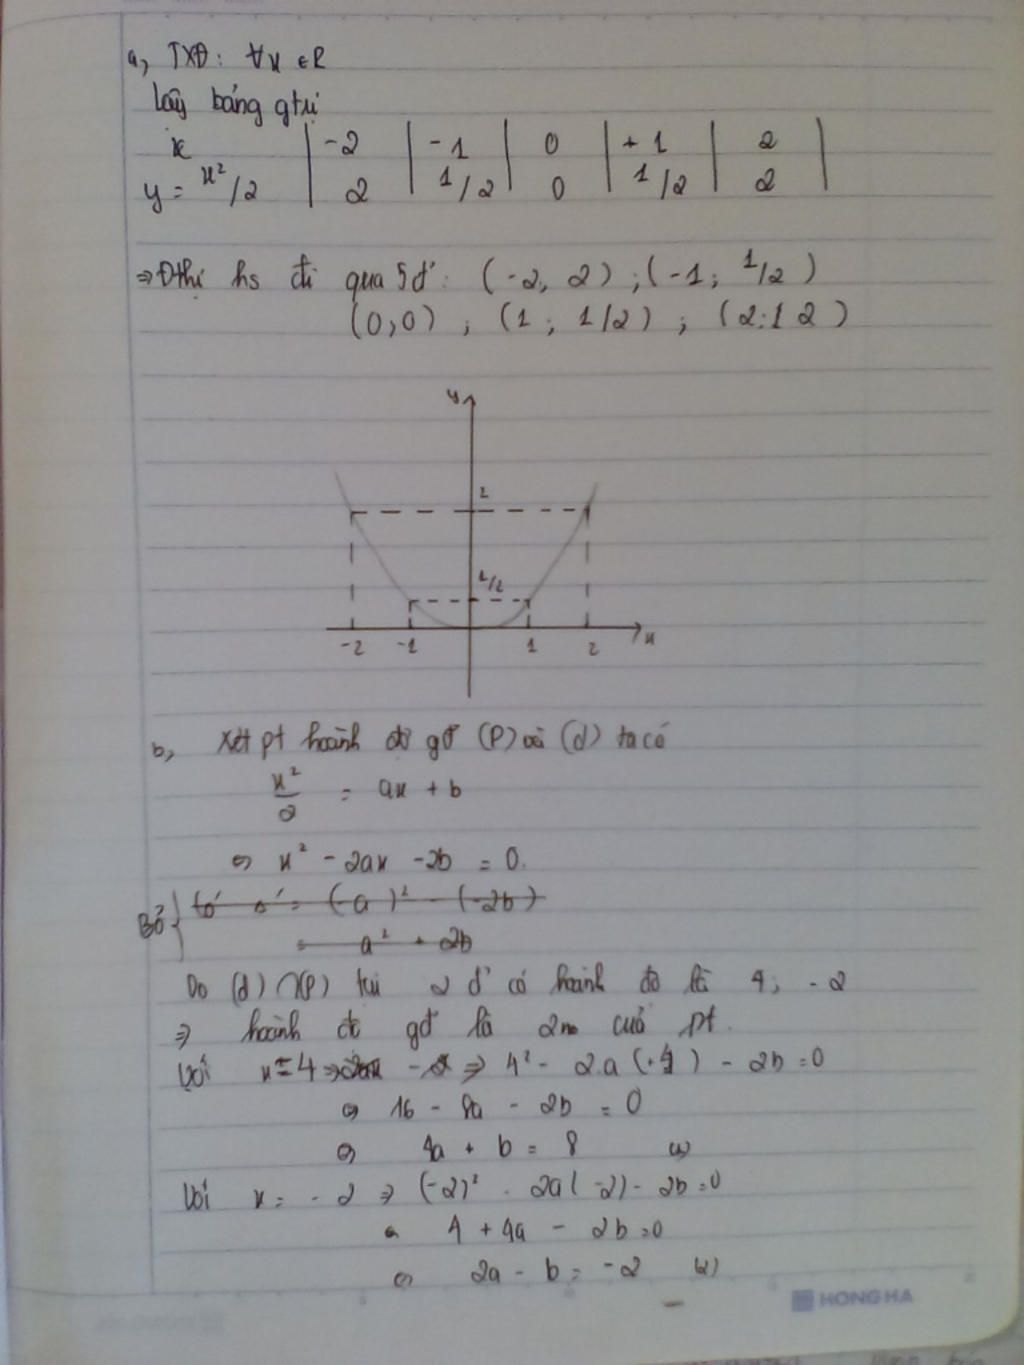 a, TXĐ: ∀x ∈ R
Lấy bảng gtrị
x | -2 | -1 | 0 | +1 | 2 |
y = x²/2 | 2 | 1/2 | 0 | 1/2 | 2 |
⇒ Đthị hs đi qua 5 đ': (-2, 2) ; (-1; 1/2)
(0,0) ; (1; 1/2) ; (2; 2)
y
2
1/2
-2 -1 1 2 x
b, Xét pt hoành độ gđ (P) và (d) ta có
x²/2 = ax + b
⇔ x² - 2ax - 2b = 0.
Bỏ { = (-a)² - (-2b)
= a² + 2b
Do (d) ∩ (P) tại 2 đ' có hoành độ là 4; -2
⇒ hoành độ gđ là 2 no của pt.
Với x = 4 ⇒ 4² - 2.a(4) - 2b = 0
⇔ 16 - 8a - 2b = 0
⇔ 4a + b = 8 (1)
Với x = -2 ⇒ (-2)² - 2a(-2) - 2b = 0
⇔ 4 + 4a - 2b = 0
⇔ 2a - b = -2 (2)
HONG HA